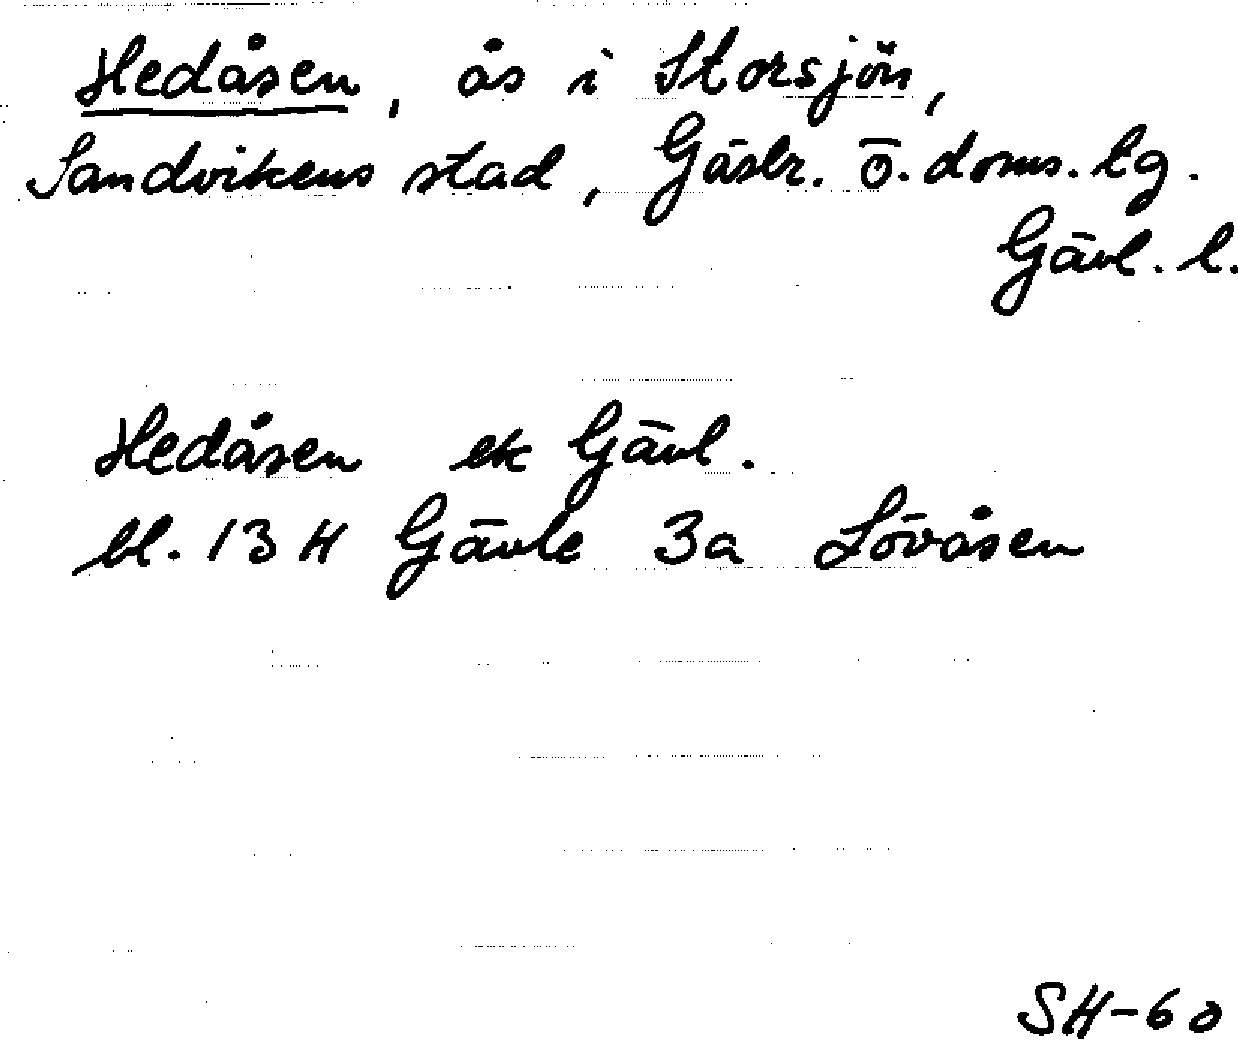 Hedåsen, ås i Storsjön,
Sandvikens stad, Gästr. ö. doms. lg.
Gävl. l.
Hedåsen ek Gävl.
bl. 13 H Gävle 3a Lövåsen
SH-60